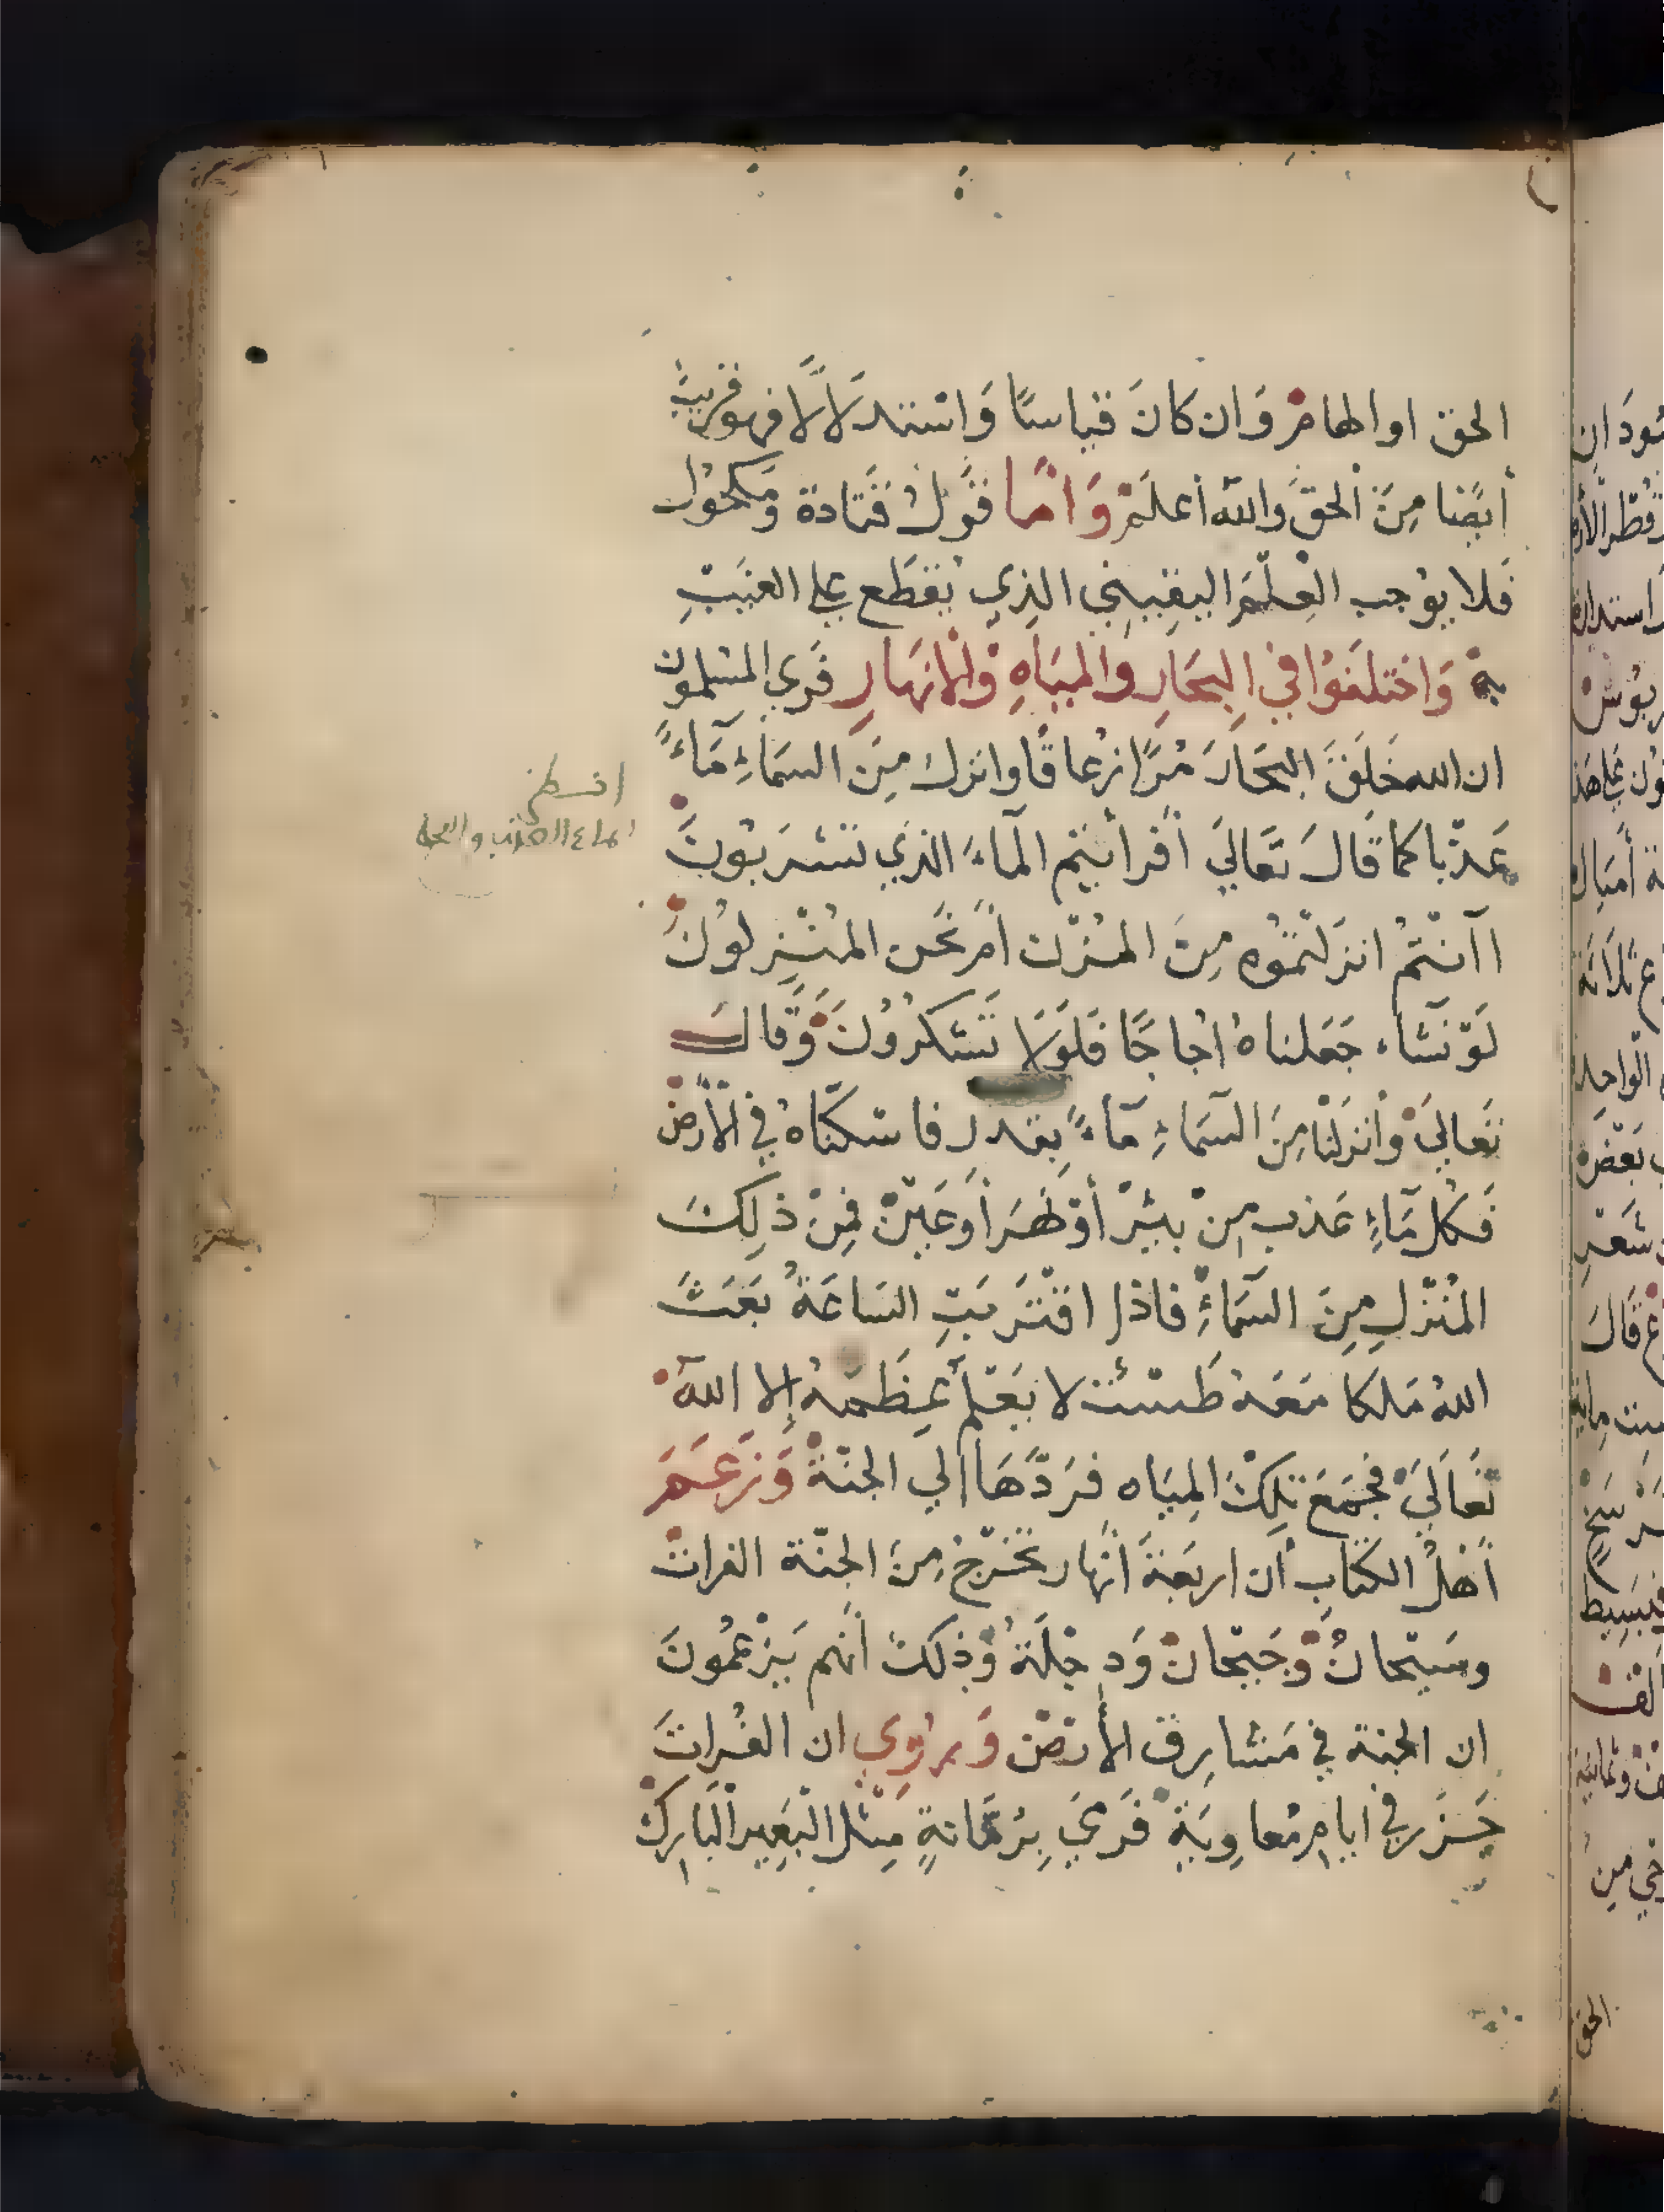 الحق او الهامٌ وَان كانَ قياسًا وَاسْتدلَالًا فهو قريبٌ
أيضًا مِنَ ألحقَّ والله أعلَمْ وَامَّا قَولُ قَتادة وَمَكحُول
فَلا يوُجب العِلْمَ اليقِيني الذِي يُقطَع علي الغَيبِ
بهْ وَاختلَفوُا في البِحَارِ والميَاهِ وْالأنهَارِ فَرَي المسْلمُونَ
ان الله خلَقَ البحَارَ مُرًّا زُعاقًا وانزل مِنَ السمَاءِ مَآءً
عَذْبا كما قَالَ تَعَالي أفَرأيتم المآءَ الذي تشرَبُونَ
اآنْتمُ انزَلتمُوُه مِنَ المُزْن أمْ نَحْن المُنْزِلوُنَ
لَوْ نَشَاء جَعَلناهُ اُجاجًا فَلَوْلَا تَشكُرُوُنَ وَقَالَ
تعَاليَ وأنزَلْنا مِنَ السمَآءِ مَآءً بِقدرٍ فاسْكنّاهُ في الأرض
فَكلُ مَآءٍ عَذب مِنْ بئيْرْ أوْ نَهَر أوَعَيْنْ فمِنْ ذلِكَ
المُنْزلِ مِنَ السمَآءِ فاذا اقتَرَبَتِ السَاعَةُ بَعَثَ
اللهُ مَلكا مَعَهُ طَسْتْ لا يَعْلم عِظَمهُ إلا اللهَ
تعَاليَ فجَمَعَ تِلكَ المِيَاه فرَدَّهَا الي الجنّةْ وَزَعَمَ
أهلُ الكتَابِ أن اربَعَةَ انهار تَخرُجْ مِنَ الجنّة الفراتْ
وسَيْحانُ وْجَيْحانْ وَدِجْلَةُ وْذلكَ أنهم يَزْعُمُونَ
ان الجنة في مَشارِق الأرضْ وَرُوِي ان الفُراتَ
جَزَر في ايامِ مُعاوِيَةَ فَرَمَي بِرُمّانةٍ مِثْل البَعِير البَارِكْ